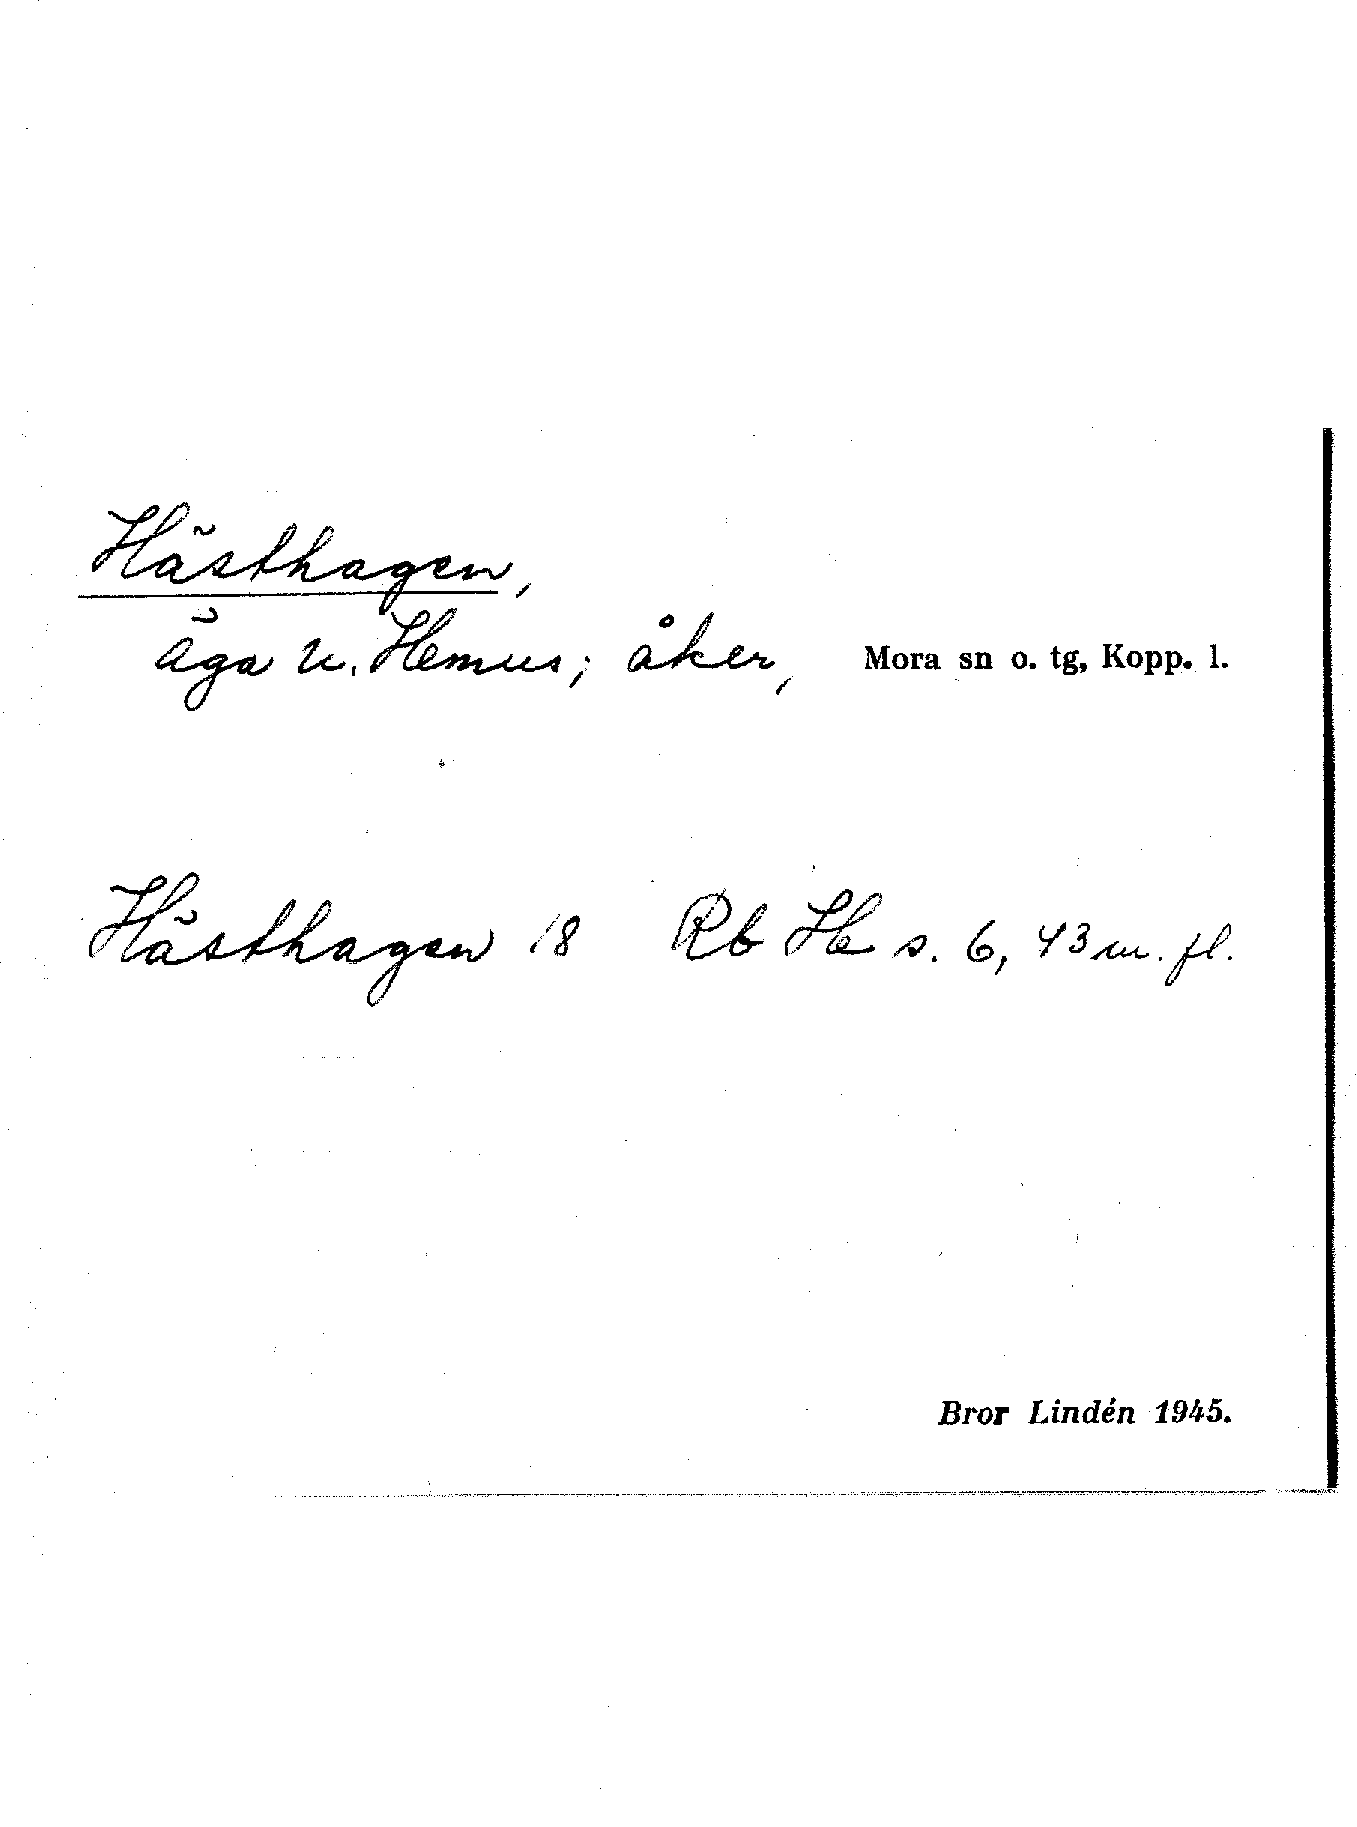 Hästhagen,
äga u. Hemus; åker, Mora sn o. tg, Kopp. l.
Hästhagen 18 Rb He s. 6, 43 m. fl.
Bror Lindén 1945.